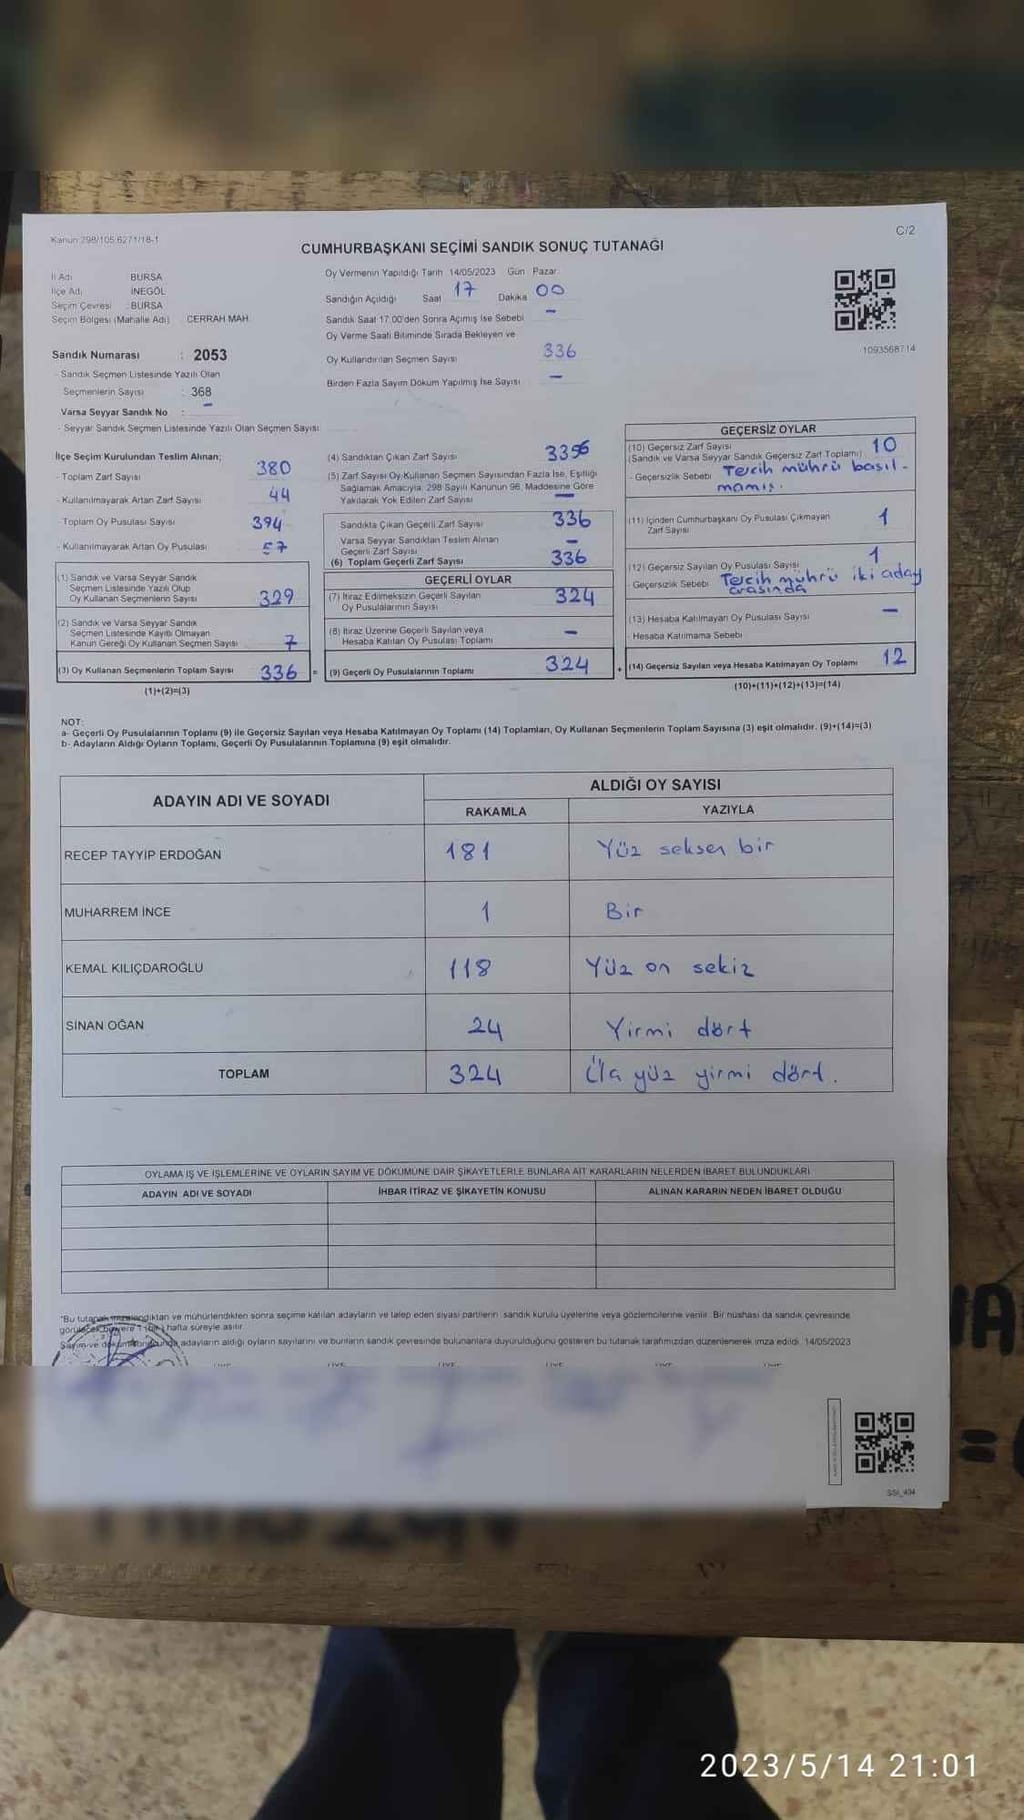 Kanun 298/105,6271/18-1
C/2
CUMHURBAŞKANI SEÇİMİ SANDIK SONUÇ TUTANAĞI
İl Adı BURSA
İlçe Adı İNEGÖL
Seçim Çevresi : BURSA
Seçim Bölgesi (Mahalle Adı) CERRAH MAH.
Sandık Numarası : 2053
- Sandık Seçmen Listesinde Yazılı Olan
Seçmenlerin Sayısı : 368
Varsa Seyyar Sandık No : -
- Seyyar Sandık Seçmen Listesinde Yazılı Olan Seçmen Sayısı
Oy Vermenin Yapıldığı Tarih 14/05/2023 Gün Pazar
Sandığın Açıldığı Saat 17 Dakika 00
Sandık Saat 17:00'den Sonra Açımış İse Sebebi -
Oy Verme Saati Bitiminde Sırada Bekleyen ve
Oy Kullandırılan Seçmen Sayısı 336
Birden Fazla Sayım Döküm Yapılmış İse Sayısı -
1093568714
İlçe Seçim Kurulundan Teslim Alınan;
- Toplam Zarf Sayısı 380
- Kullanılmayarak Artan Zarf Sayısı 44
- Toplam Oy Pusulası Sayısı 394
- Kullanılmayarak Artan Oy Pusulası 57
(1) Sandık ve Varsa Seyyar Sandık
Seçmen Listesinde Yazılı Olup
Oy Kullanan Seçmenlerin Sayısı 329
(2) Sandık ve Varsa Seyyar Sandık
Seçmen Listesinde Kayıtlı Olmayan
Kanun Gereği Oy Kullanan Seçmen Sayısı 7
(3) Oy Kullanan Seçmenlerin Toplam Sayısı 336 =
(1)+(2)=(3)
(4) Sandıktan Çıkan Zarf Sayısı 336
(5) Zarf Sayısı Oy Kullanan Seçmen Sayısından Fazla İse, Eşitliği
Sağlamak Amacıyla, 298 Sayılı Kanunun 98. Maddesine Göre
Yakılarak Yok Edilen Zarf Sayısı -
Sandıkta Çıkan Geçerli Zarf Sayısı 336
Varsa Seyyar Sandıktan Teslim Alınan
Geçerli Zarf Sayısı -
(6) Toplam Geçerli Zarf Sayısı 336
GEÇERLİ OYLAR
(7) İtiraz Edilmeksizin Geçerli Sayılan
Oy Pusulalarının Sayısı 324
(8) İtiraz Üzerine Geçerli Sayılan veya
Hesaba Katılan Oy Pusulası Toplamı -
(9) Geçerli Oy Pusulalarının Toplamı 324 +
GEÇERSİZ OYLAR
(10) Geçersiz Zarf Sayısı 10
(Sandık ve Varsa Seyyar Sandık Geçersiz Zarf Toplamı)
- Geçersizlik Sebebi Tercih mührü basıl-
mamış.
(11) İçinden Cumhurbaşkanı Oy Pusulası Çıkmayan
Zarf Sayısı 1
(12) Geçersiz Sayılan Oy Pusulası Sayısı 1
- Geçersizlik Sebebi Tercih mührü iki aday
arasında
(13) Hesaba Katılmayan Oy Pusulası Sayısı -
Hesaba Katılmama Sebebi
(14) Geçersiz Sayılan veya Hesaba Katılmayan Oy Toplamı 12
(10)+(11)+(12)+(13)=(14)
NOT:
a- Geçerli Oy Pusulalarının Toplamı (9) ile Geçersiz Sayılan veya Hesaba Katılmayan Oy Toplamı (14) Toplamları, Oy Kullanan Seçmenlerin Toplam Sayısına (3) eşit olmalıdır. (9)+(14)=(3)
b- Adayların Aldığı Oyların Toplamı, Geçerli Oy Pusulalarının Toplamına (9) eşit olmalıdır.
ADAYIN ADI VE SOYADI ALDIĞI OY SAYISI
RAKAMLA YAZIYLA
RECEP TAYYİP ERDOĞAN 181 Yüz seksen bir
MUHARREM İNCE 1 Bir
KEMAL KILIÇDAROĞLU 118 Yüz on sekiz
SİNAN OĞAN 24 Yirmi dört
TOPLAM 324 yüz yirmi dört.
OYLAMA İŞ VE İŞLEMLERİNE VE OYLARIN SAYIM VE DÖKÜMÜNE DAİR ŞİKAYETLERLE BUNLARA AİT KARARLARIN NELERDEN İBARET BULUNDUKLARI
ADAYIN ADI VE SOYADI İHBAR İTİRAZ VE ŞİKAYETİN KONUSU ALINAN KARARIN NEDEN İBARET OLDUĞU
"Bu tutanak imzalandıktan ve mühürlendikten sonra seçime katılan adayların ve talep eden siyasi partilerin sandık kurulu üyelerine veya gözlemcilerine verilir. Bir nüshası da sandık çevresinde
hafta süreyle asılır.
Sayım ve adayların aldığı oyların sayılarını ve bunların sandık çevresinde bulunanlara duyurulduğunu gösteren bu tutanak tarafımızdan düzenlenerek imza edildi. 14/05/2023
SSI_494
2023/5/14 21:01